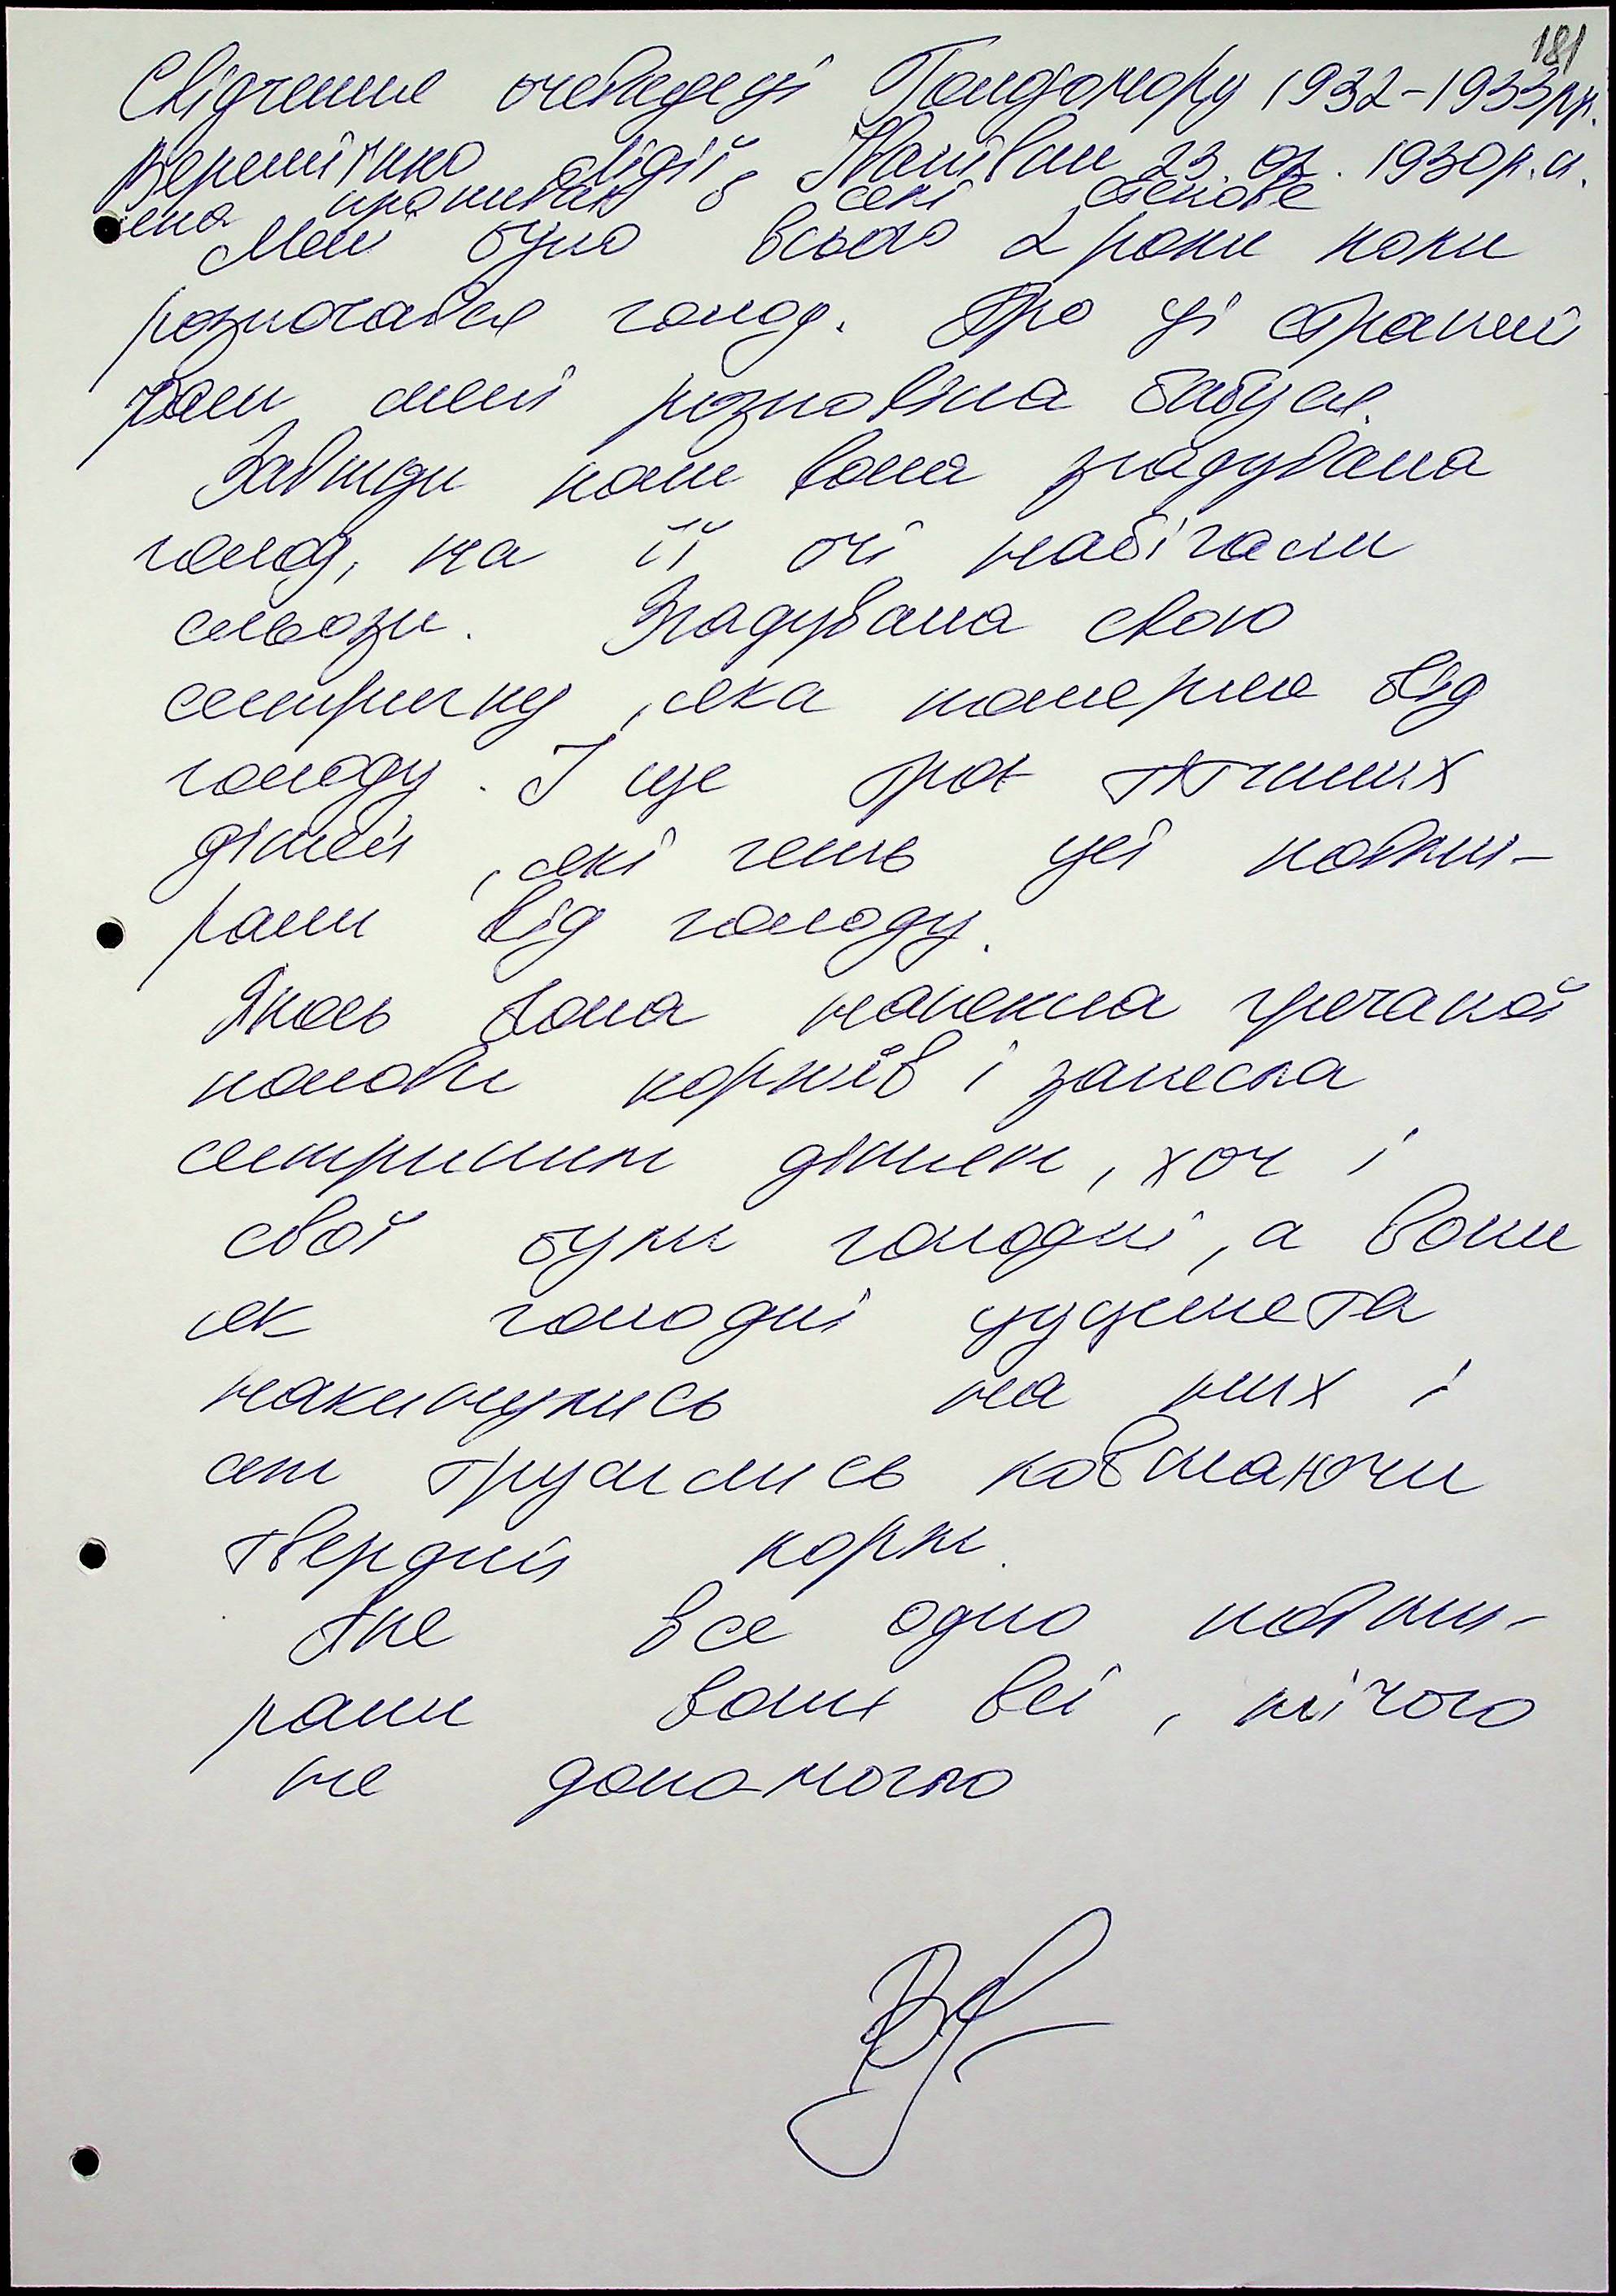 181
Свідчення очевидеці Голодомору 1932-1933рр.
Веремійчико Лідії Іванівни 23. 02. 1930р.н.
яка проживає в селі Степове
Мені було всього 2 роки коли
розпочався голод. Про ці страшні
роки мені розповіла бабуся.
Завжди коли вона згадувала
голод, на її очі набігали
сльози. Згадувала свою
сестричку, яка померла від
голоду. І ще про тітчиних
дітей, які геть усі повми-
рали від голоду.
Якось вона напекла гречаної
полови коржів і занесла
сестриним дітям, хоч і
свої були голодні, а вони
як голодні цуценята
накинулись на них і
аж трусились ковтаючи
твердий корж.
Але все одно повми-
рали вони всі, нічого
не допомогло